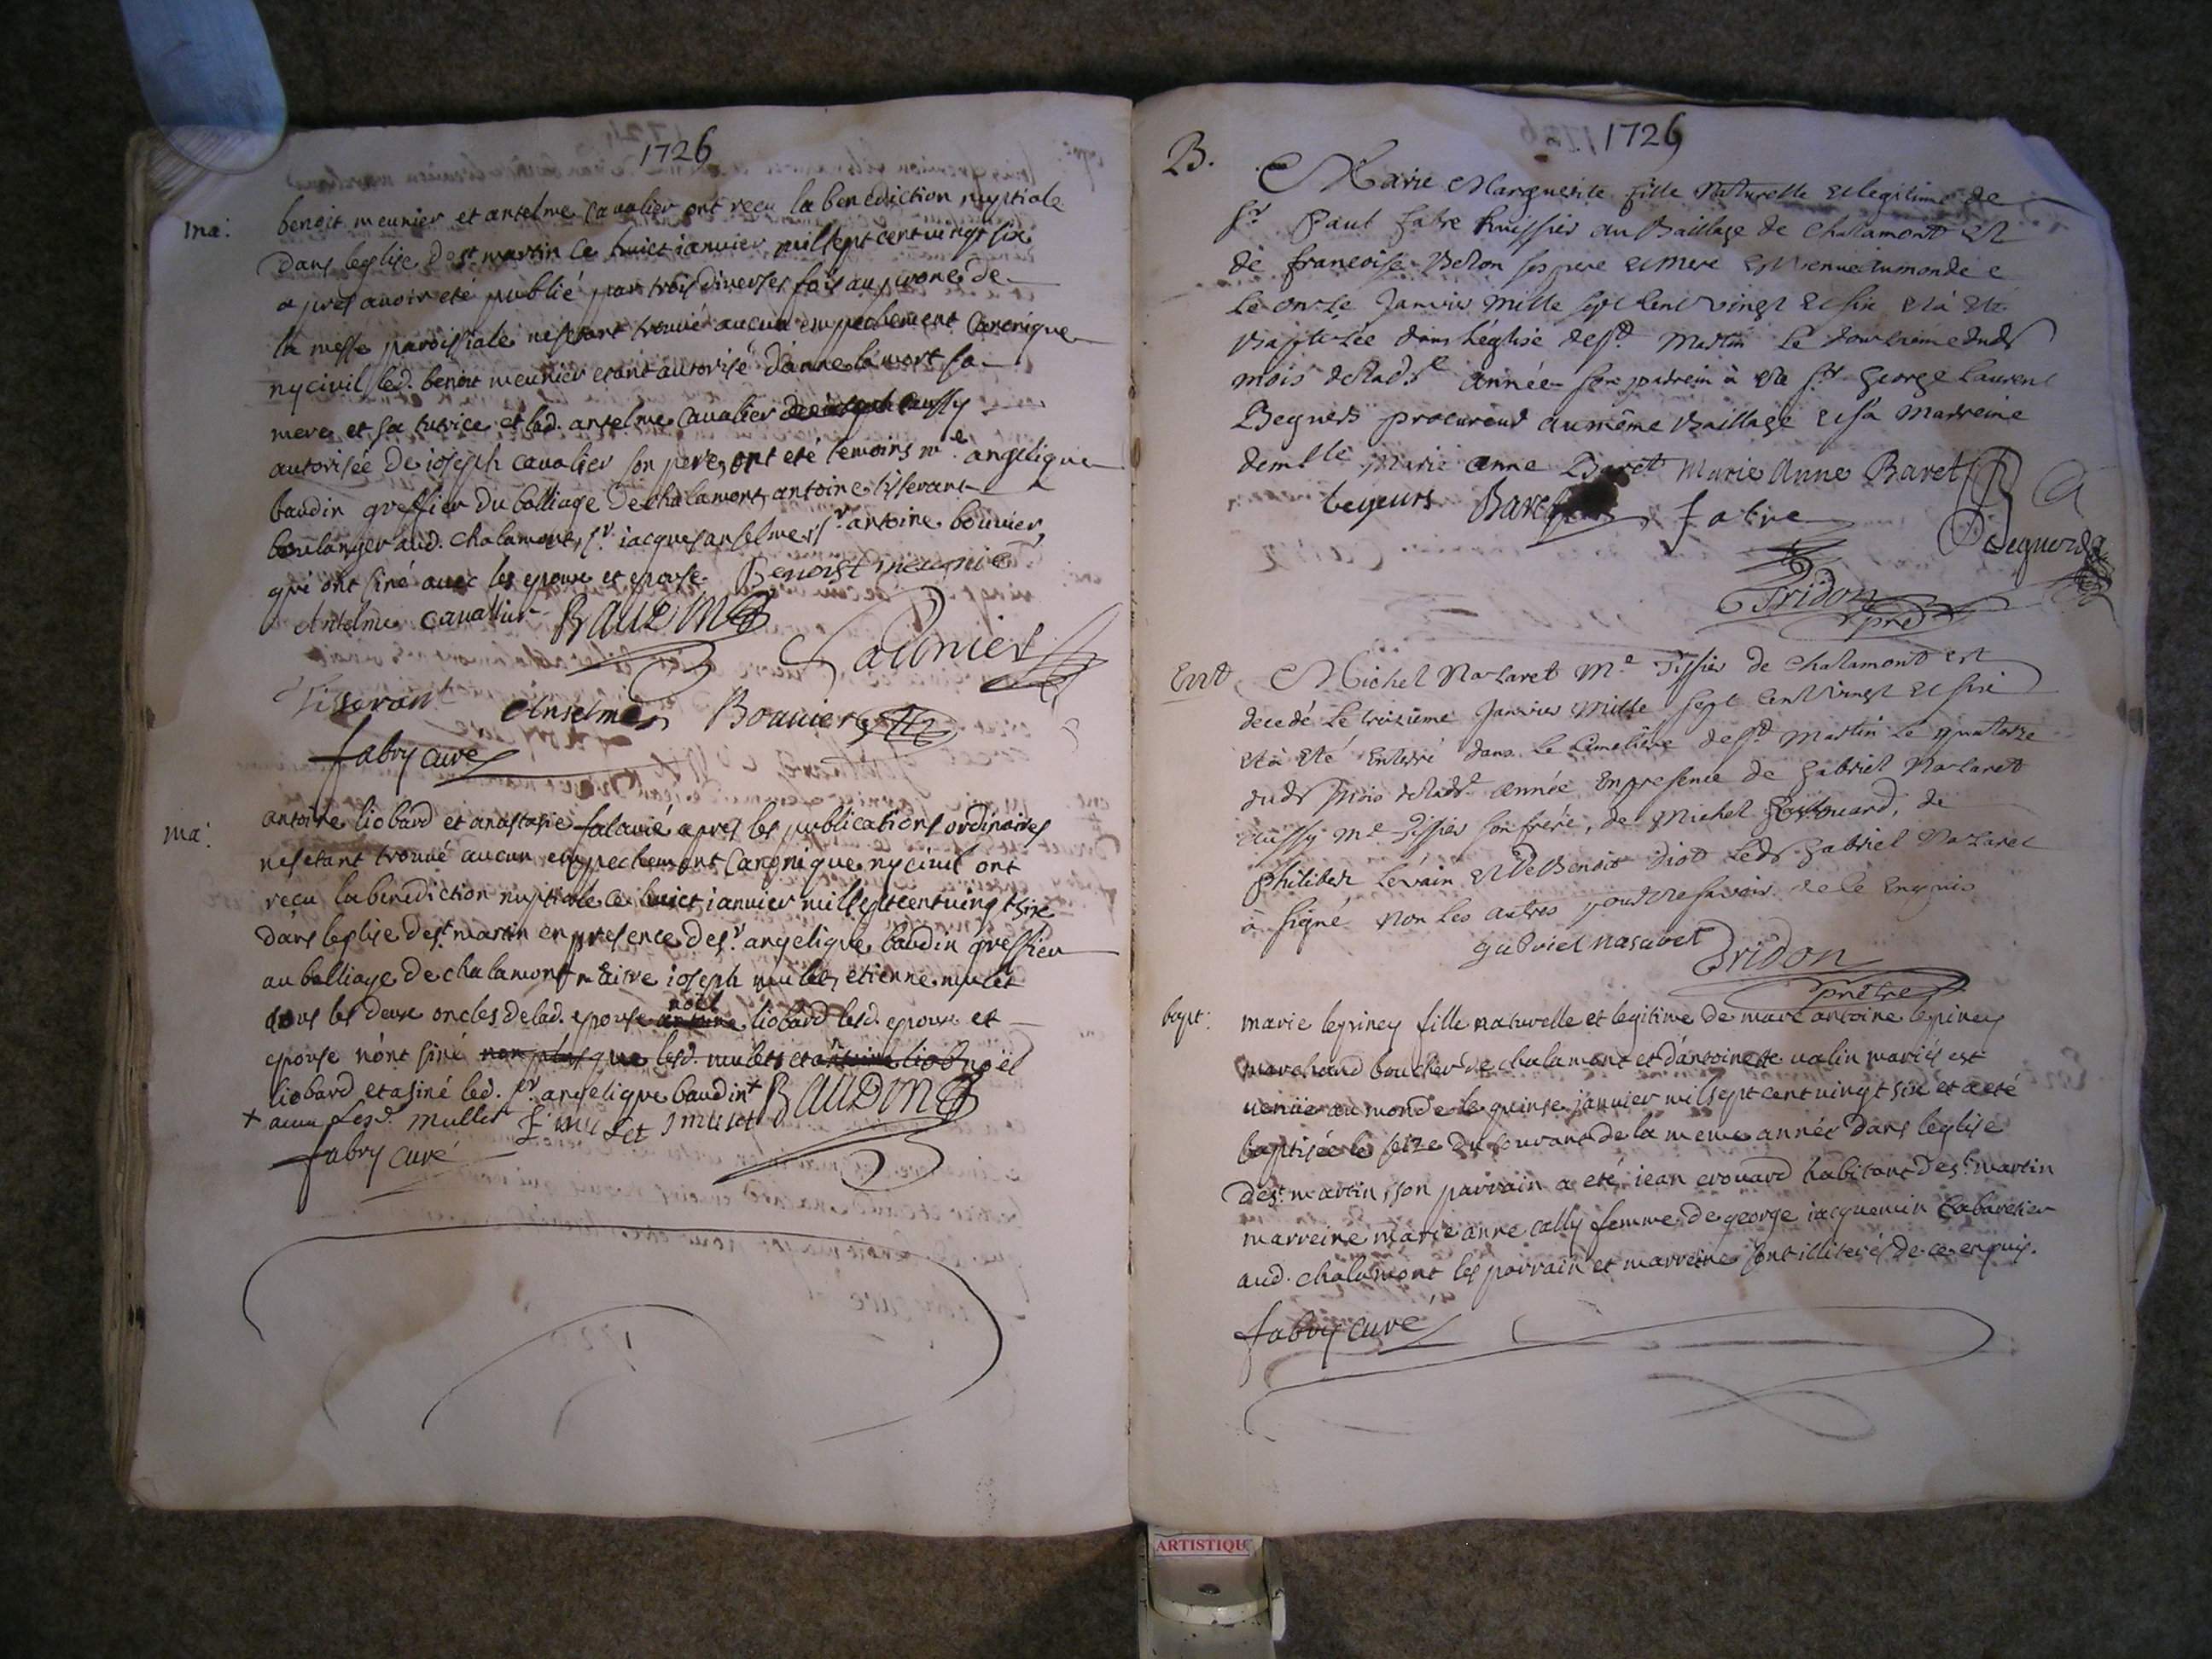 1726
ma:
benoit meunier et anselme cavalier ont recu la benediction nuptiale
dans leglise de st martin ce huict ianvier mil sept cent vingt six
apres avoir eté publié par trois diverses fois au prone de
la messe paroissiale ne setant trouvé aucun empechement canonique
ny civil led. benoit meunier etant autorisé danne la mort sa
mere et sa tutrice et lad. anselme cavalier aussy
autorisée de ioseph cavalier son pere, ont eté temoins mre. angelique
baudin greffier du balliage de chalamont, antoine tisserant
boulanger aud. chalamont, sr. iacques anselme, sr. antoine bouvier,
qui ont siné avec les epoux et epouse. Benoist meunié
Anselme cavallier BAUDIN
Tisserant Anselme Bouvier
fabry curé
ma:
antoine liobard et anastasie falavié apres les publications ordinaires
ne setant trouvé aucun empechement canonique ny civil ont
recu la benediction nuptiale ce huict ianvier mil sept cent vingt six
dans leglise de st. martin en presence de sr. angelique baudin greffier
au balliage de chalamont maitre ioseph mulet, etienne mulet
tous les deux oncles de lad. epouse antoine noël liobard lesd. epoux et
epouse nont siné non plus que lesd. mulets et antoine liob noël
liobard et a siné led. sr. angelique baudin + BAUDIN
+ avec lesd. mullet E mulet J mulet
fabry curé
1726
B.
Marie Marguerite fille Naturelle et legitime de
Sr Paul Fabre huissier au Baillage de Chalamont et
de francoise Belon ses pere et Mere est venue au monde
le onze Janvier Mille sept cent vingt et six et a eté
baptisée dans l'église de st Martin le douzième dud
mois de lade année son padrein a eté sr George Laurent
Beguerd procureur au même baillage et sa Marreine
demlle Marie anne Baret Marie Anne Baret
Baret fabre
Beguerd
Tridon
pre
Ent
Michel Nazaret Me Tissier de Chalamont est
decedé le treizieme Janvier Mille sept cent vingt et six
et a eté Enterré dans le Cimetiere de st Martin le quatorze
dud mois de lad année En presence de Gabriel Nazaret
aussy Me Tissier son frere, de Michel, de
Philibert Levrain et de Benoit Diot led Gabriel Nazaret
a signé Non les autres pour ne savoir de ce Enquis
gabriel nasaret Tridon
prêtre
bapt:
marie lepiney fille naturelle et legitime de marc antoine lepiney
marchand boucher de chalamont et d'antoinette valin mariés est
venüe au monde le quinze janvier mil sept cent vingt six et a eté
baptisée le seize du courant de la meme année dans leglise
de st. martin, son parrain a eté iean erouard habitant de st. martin
marreine marie anne cally femme de george iacquemin cabaretier
aud. chalamont les parrain et marreine sont illiterés de ce enquis.
fabry curé
ARTISTIQU